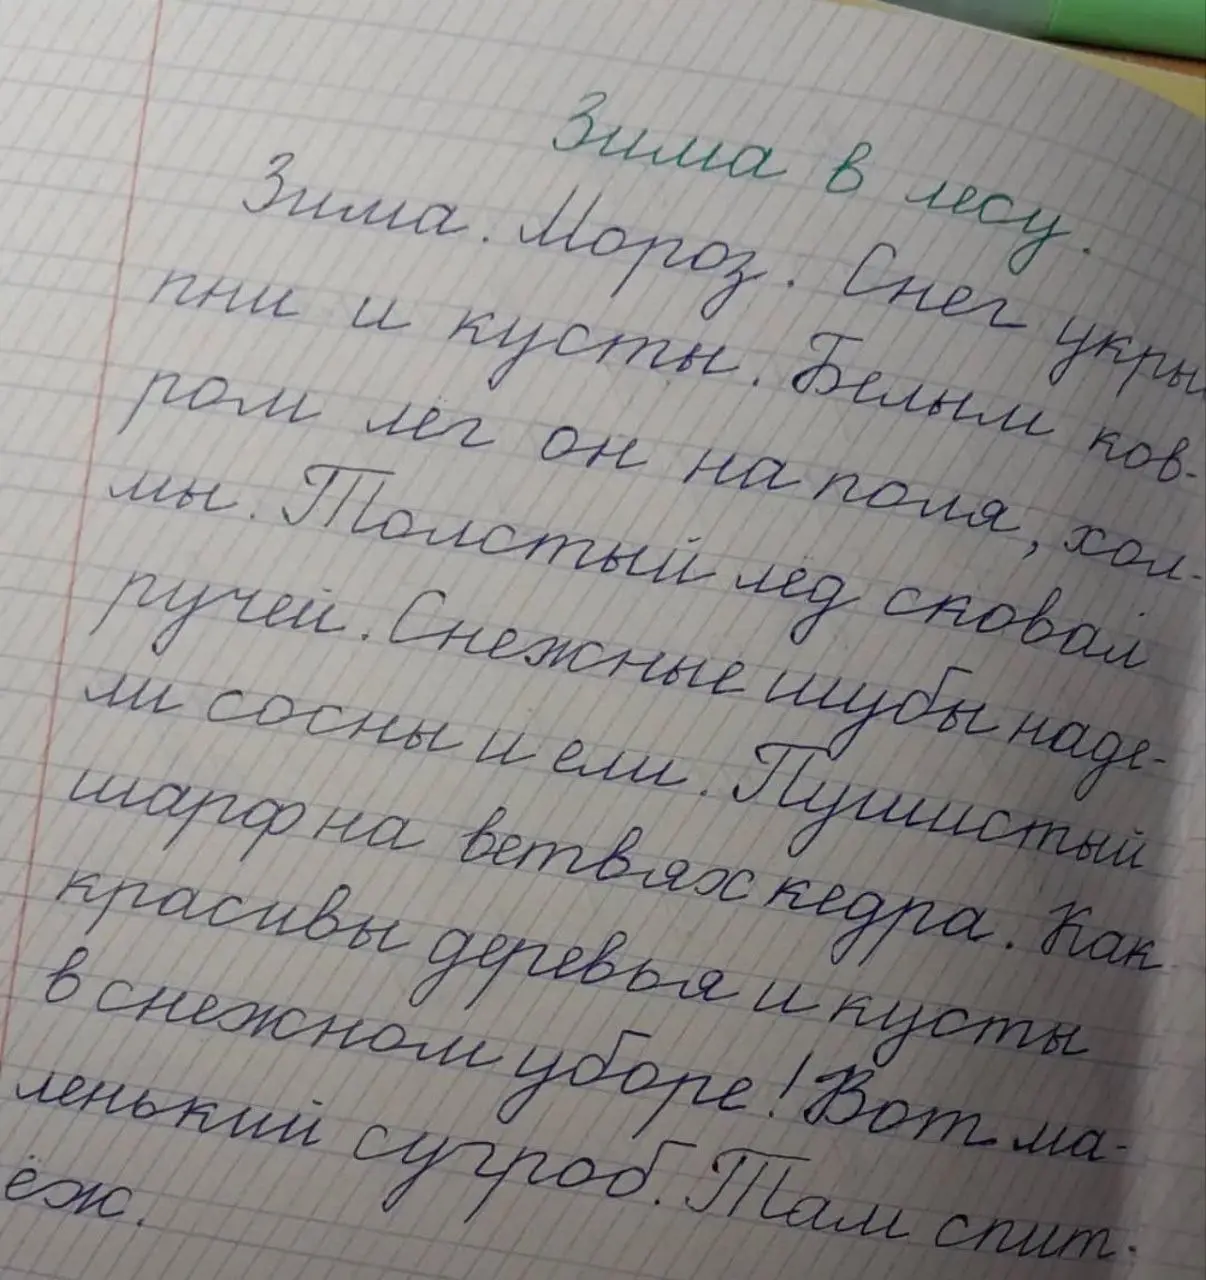 Зима в лесу.
Зима. Мороз. Снег укры
пни и кусты. Белым ков-
ром лёг он на поля, хол-
мы. Толстый лёд сковал
ручей. Снежные шубы наде-
ли сосны и ели. Пушистый
шарф на ветвях кедра. Как
красивы деревья и кусты
в снежном уборе! Вот ма-
ленький сугроб. Там спит
ёж.